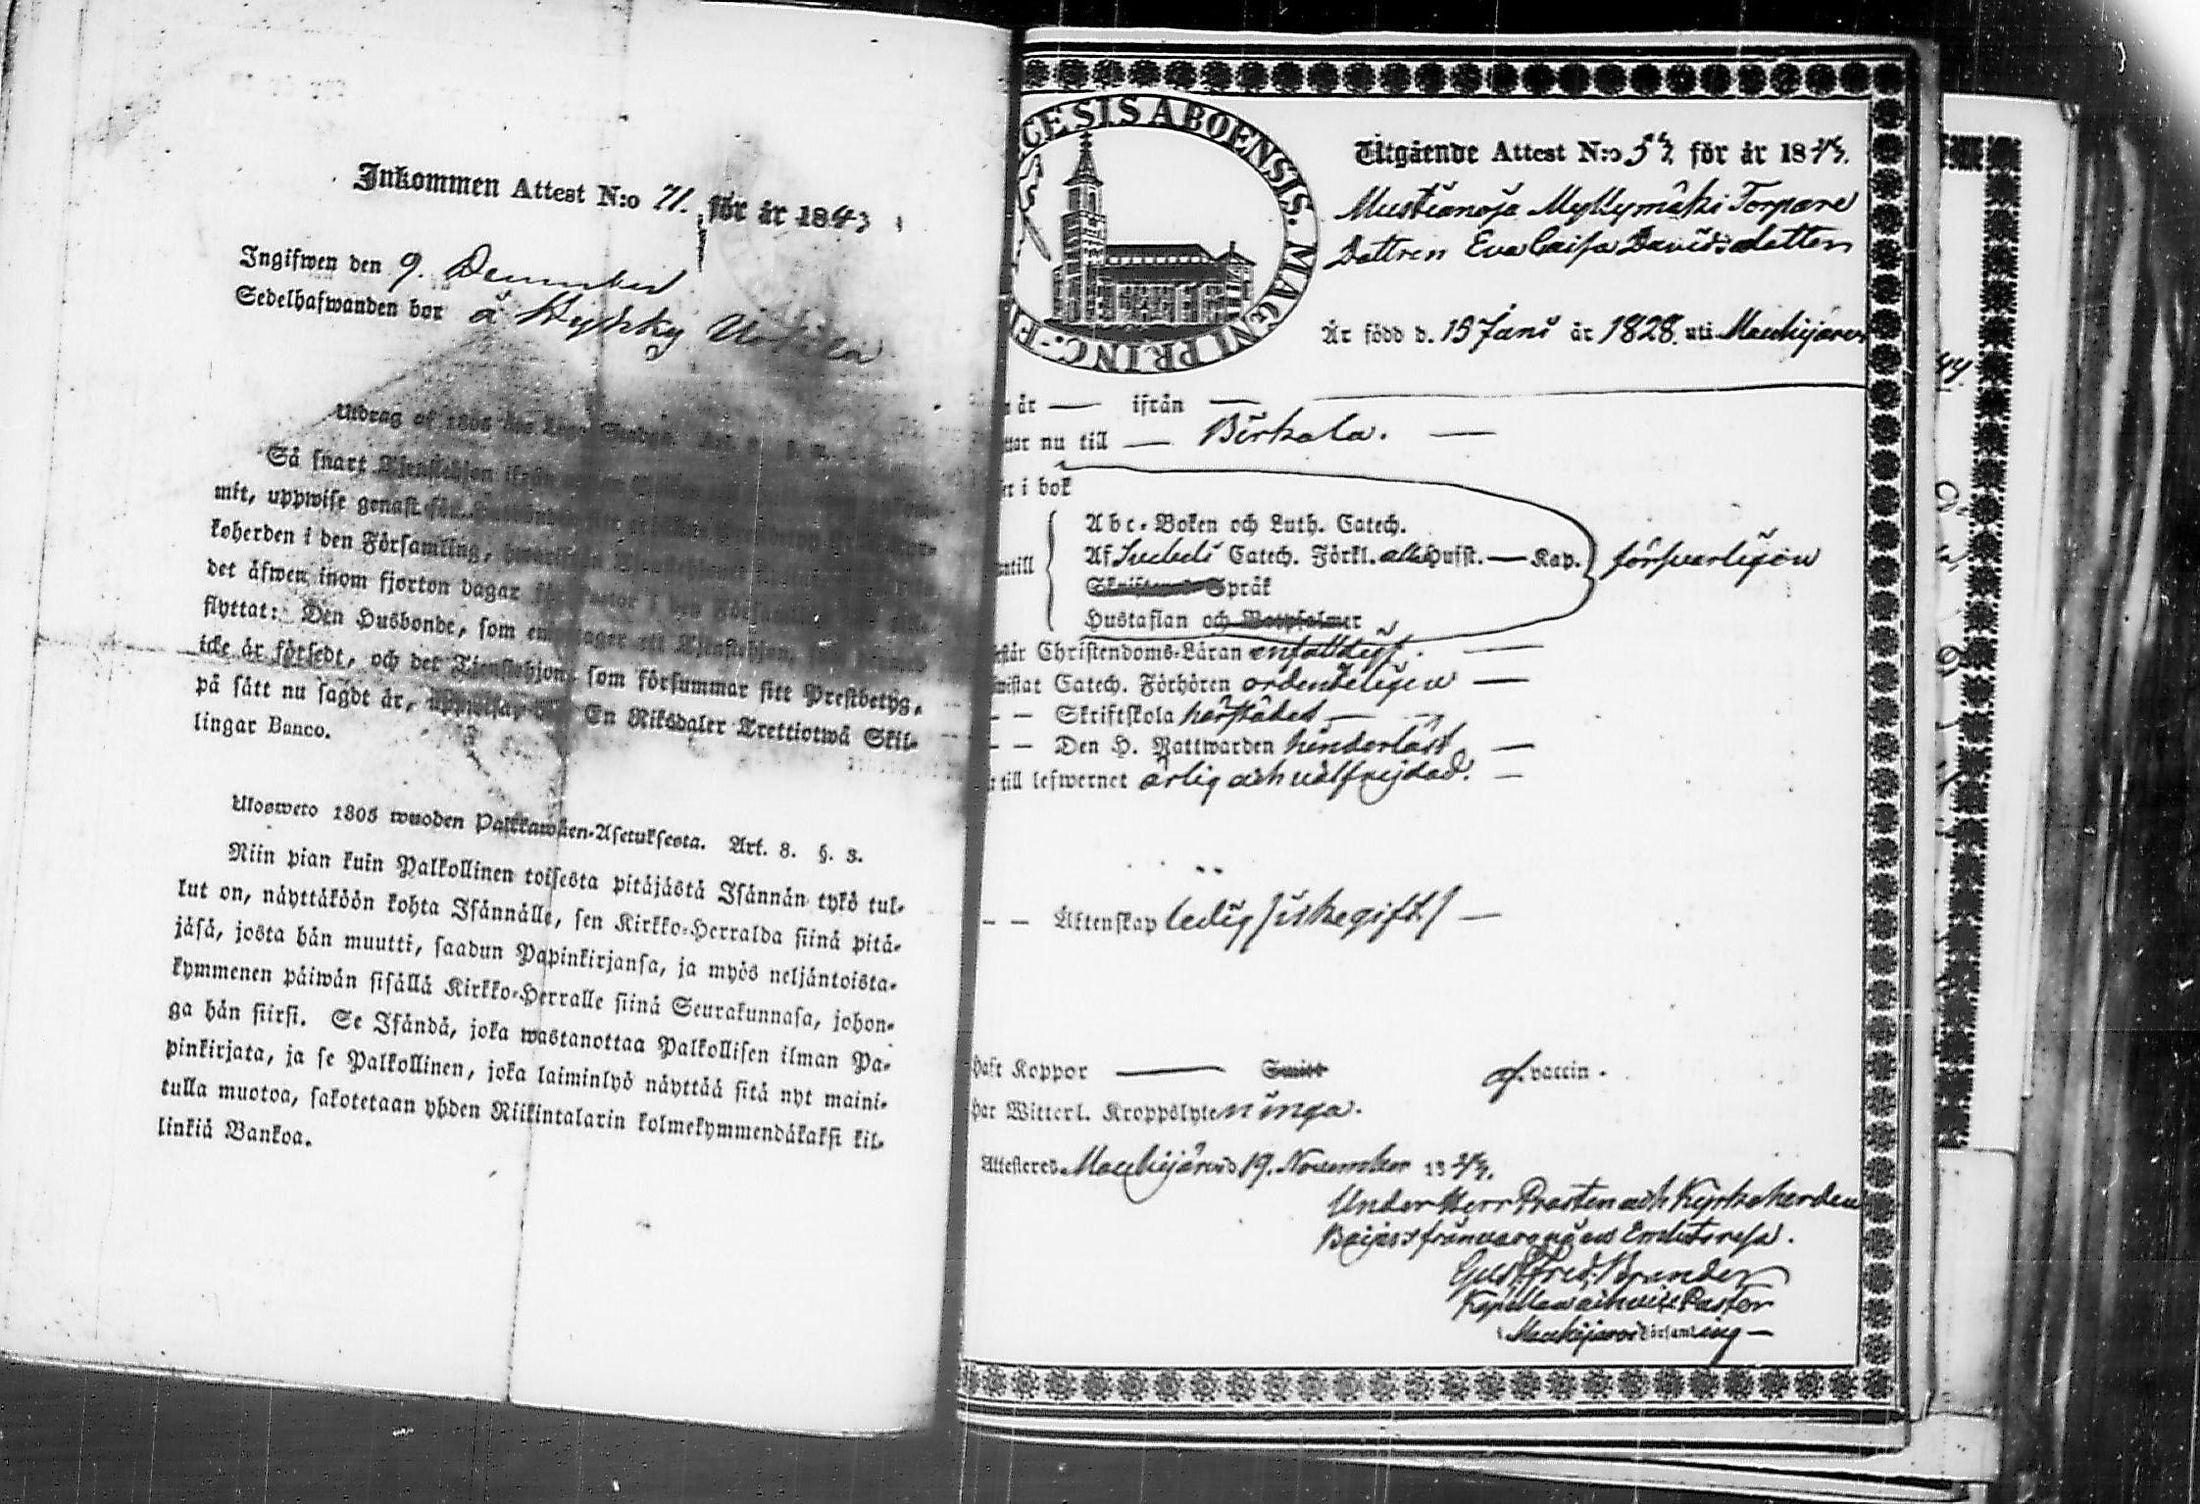 Inkommen Attest N:o 71. för år 1843
Ingifwen den 9. December
Sedelhafwanden bor å Hyhky Uotila
Utdrag af 1805 års
Så snart Tjenstehjon ifrån
mit, uppwise genast för
koherden i den Församling,
det äfwen inom fjorton dagar för Pastor i den
flyttat: Den Husbonde, som emottager ett Tjenstehjon,
icke är försedt, och det Tjenstehjon, som försummar sitt Prestbetyg,
på sätt nu sagdt är, uppwisa, En Riksdaler Trettiotwå Skil-
lingar Banco.
Ulosweto 1805 wuoden Palkkawäen-Asetuksesta. Art. 8. §. 3.
Niin pian kuin Palkollinen toisesta pitäjästä Isännän tykö tul-
lut on, näyttäköön kohta Isännälle, sen Kirkko-Herralda siinä pitä-
jäsä, josta hän muutti, saadun Papinkirjansa, ja myös neljäntoista-
kymmenen päiwän sisällä Kirkko-Herralle siinä Seurakunnasa, johon-
ga hän siirsi. Se Isändä, joka wastanottaa Palkollisen ilman Pa-
pinkirjata, ja se Palkollinen, joka laiminlyö näyttää sitä nyt maini-
tulla muotoa, sakotetaan yhden Riikintalarin kolmekymmendäkaksi kil-
linkiä Bankoa.
CESIS ABOENSIS. MAGNI PRINC.-F
Utgående Attest N:o 57. för år 1843.
Mustianoja Myllymäki Torpare
Dottren Eva Caisa Davidsdotter
Är född d. 15 Juni år 1828. uti Mouhijärvi
år — ifrån —
nu till — Birkala. —
i bok
Abc-Boken och Luth. Catech.
Af Svebeli Catech. Förkl. alla Hufst. — Kap. försvarligen
antill
Skriftenes Språk
Hustaflan och Botpsalmer
står Christendoms-Läran enfaldigt. —
wistat Catech. Förhören ordenteligen —
— — Skriftskola härstädes —
— — Den H. Nattwarden hinderlöst —
till lefwernet ärlig och välfrejdad. —
— — Äktenskap ledig /:icke gift:/ —
haft Koppor — Smitt af vaccin.
har Witterl. Kroppslyten inga.
Attesteras Mouhijärvi d. 19. November 1843.
Under Herr Prosten och Kyrkoherden
frånvaro på en Embetsresa.
Gust. Fred. Brander
Kapellan och vice Pastor
i Mouhijärvi Församling —